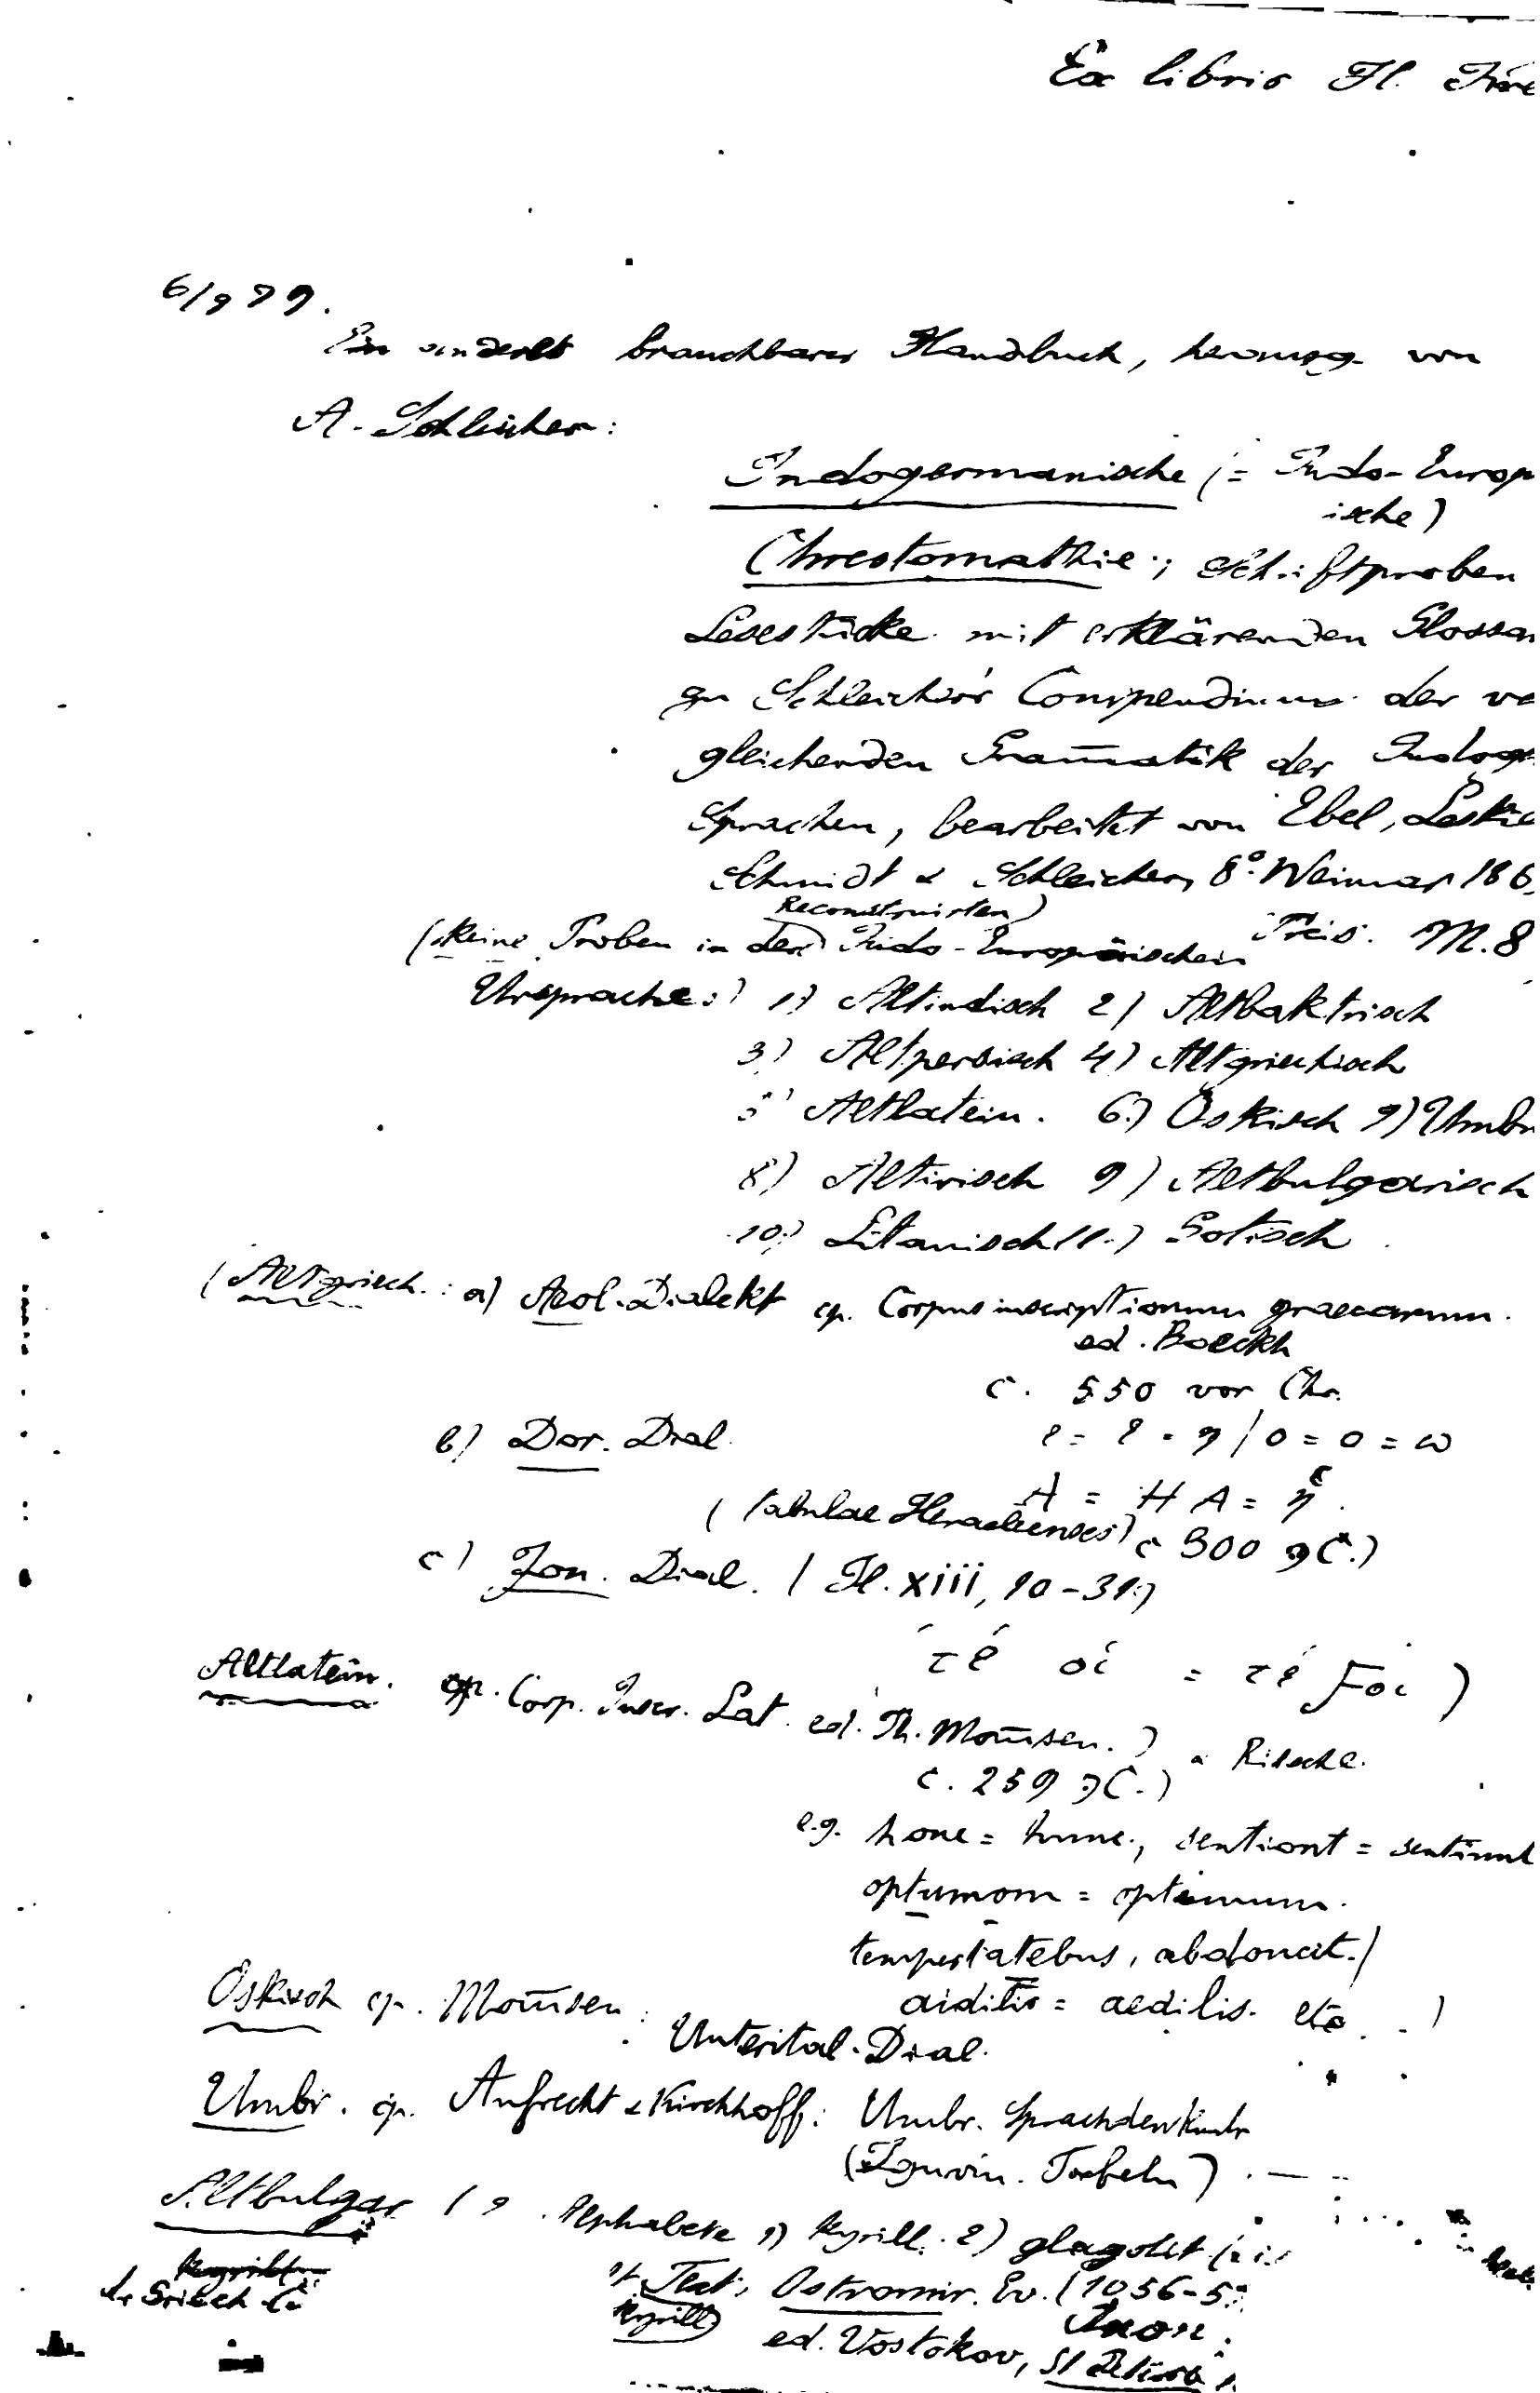 Ex libris Fl.
6/9 79.
Ein anderes brauchbares Handbuch, herausg. von
A. Schleicher:
Indogermanische (= Indo-Europ
ische)
Chrestomathie; Schriftproben
Lesestücke mit erklärenden Glossar
zu Schleicher's Compendium der ve
gleichenden Gram̄atik der Indog
Sprachen, bearbeitet von Ebel, Leskie
Schmidt & Schleicher, 8° Weimar 186
Reconstruirten)
(keine Proben in der Indo-Europäischen Preis. M. 8
Ursprache:) 1) Altindisch 2) Altbaktrisch
3) Altpersisch 4) Altgriechisch
5) Altlatein. 6.) Oskisch 7) Umbr
8) Altirisch 9) Altbulgarisch
10.) Litauisch 11.) Gotisch
(Altgriech.: a) Aeol. Dialekt cp. Corpus inscriptionum graecarum.
ed. Boeckh
c. 550 vor Chr.
b) Dor. Dial.
o = o = ω
(Tabulae Heracleenses) c 300
c) Ion. Dial. (Il. xiii, 10-31.)
τέ οἱ = τέ Ϝοι)
Altlatein. cp. Corp. Inscr. Lat. ed. Th. Mom̄sen.) & Ritschl.
c. 259
e.g. honc = hunc, sentiont = sentiunt
optumom = optimum.
tempestatebus, abdoucit.
aidilis = aedilis. etc. )
Oskisch cp. Mom̄sen:
Unterital. Dial.
Umbr. cp. Aufrecht & Kirchhoff: Umbr. Sprachdenkmlr
(Iguvin. Tafeln)
Altbulgar (2 Alphabete 1) Kyrill. 2) glagolit
Kyrill
d. Griech
Text, Ostromir. Ev. (1056-5
Kyrill)
ed. Vostokov, St Petersb